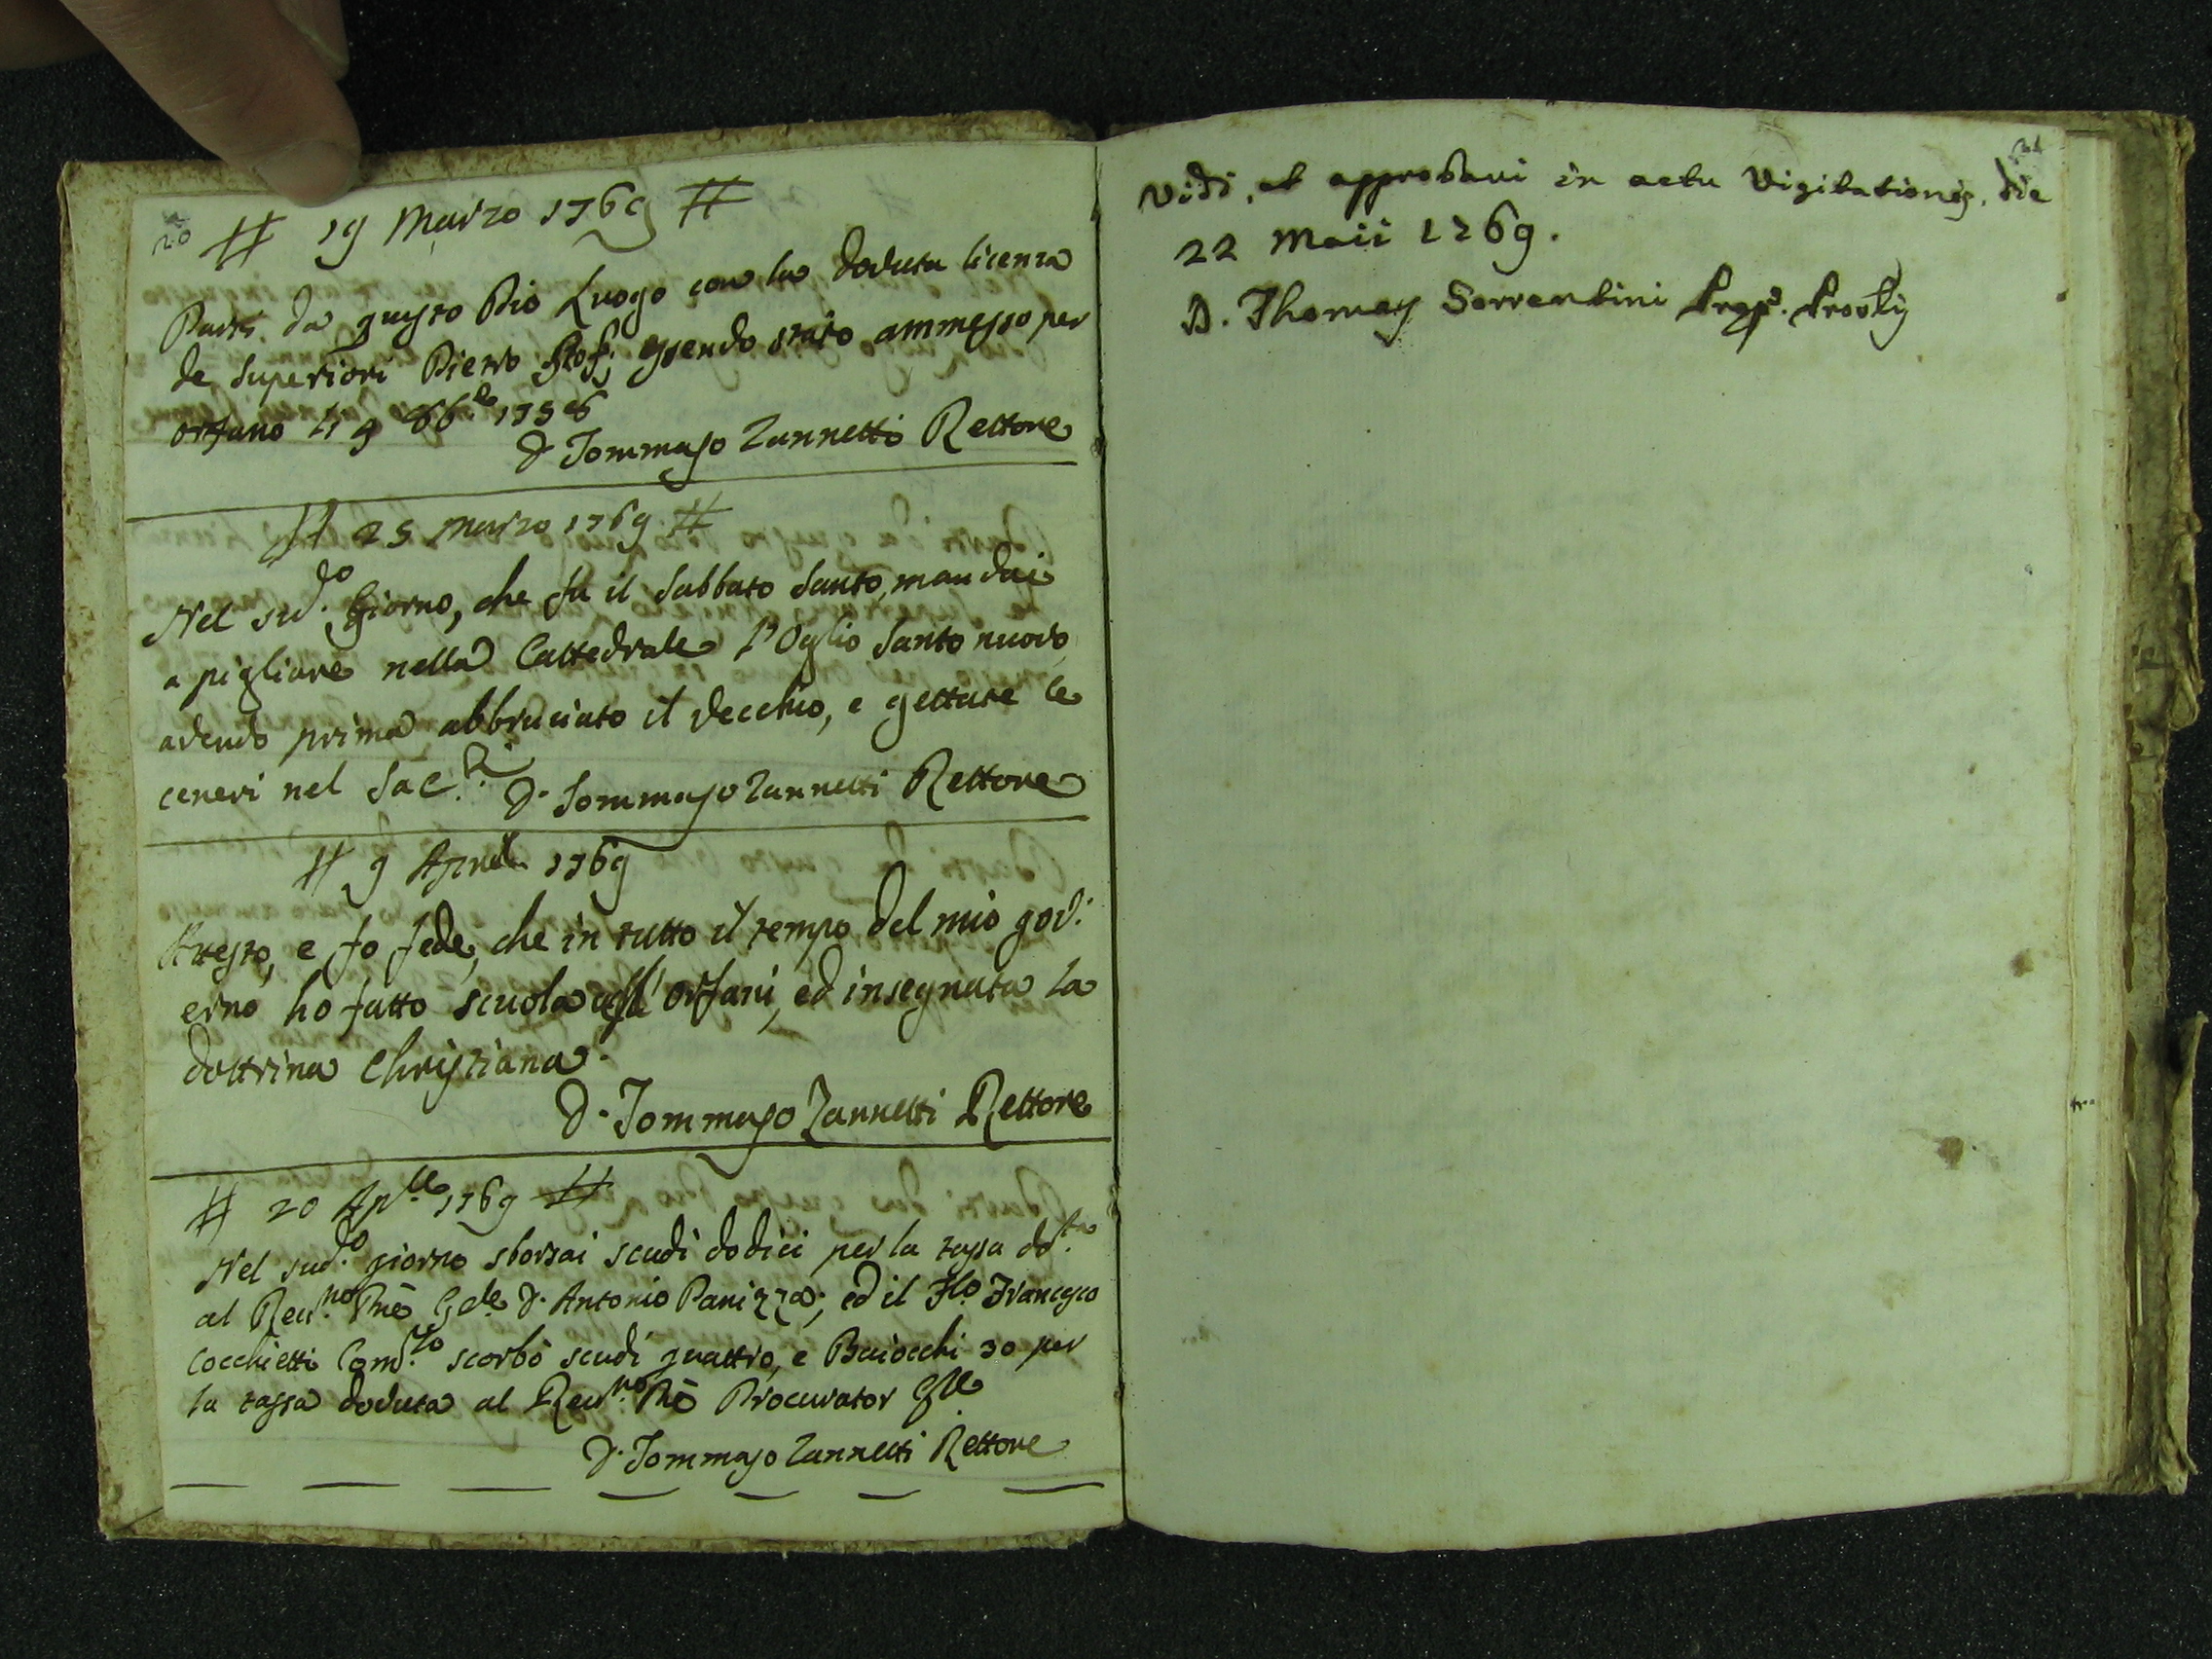 20
# 19 Marzo 1769 #
Partì da questo Pio Luogo con la dovuta licenza
de Superiori Pietro Rossi essendo stato ammesso per
orfano li 9 1756
D. Tommaso Zannetti Rettore
# 25 Marzo 1769 #
Nel sud.o Giorno, che fu il Sabbato Santo, mandai
a pigliare nella Cattedrale l'Oglio Santo nuovo
avendo prima abbruciato il vecchio, e gettate le
ceneri nel Sac.
D. Tommaso Zannetti Rettore
# 9 Aprile 1769
Attesto, e fo fede, che in tutto il tempo del mio gov:
erno ho fatto scuola agl'orfani, ed insegnata la
dottrina Christiana.
D. Tommaso Zannetti Rettore
# 20 Ap.le 1769 #
Nel sud.o giorno sborsai scudi dodici per la tassa dov.ta
al Rev.mo Pñe G.le D. Antonio Panizza; ed il Flo Francesco
Cocchietti Com.to scorbò scudi quattro, e Baiocchi 30 per
la tassa dovuta al Rev.mo Procurator Gle
D. Tommaso Zannetti Rettore
21
Vidi, et approbavi in actu Visitationis, die
22 Maii 1769.
D. Thomas Sorrentini Prep. Prov.lis